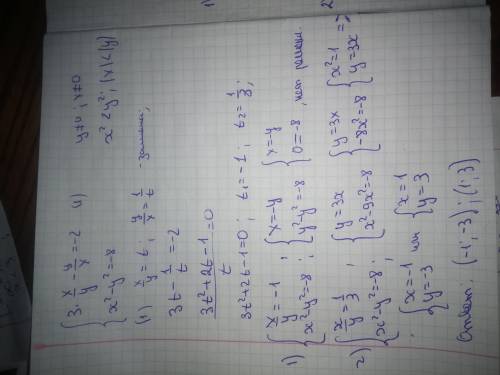 { 3·x/y − y/x = −2 (1) y≠0; x≠0
{ x²−y²=−8 x²<y²; |x|<|y|
(1) x/y = t; y/x = 1/t -замена;
3t − 1/t = −2
(3t²+2t−1)/t = 0
3t²+2t−1=0; t₁=−1; t₂=1/3;
1) { x/y = −1; x²−y²=−8; { x=−y; y²−y²=−8 { x=−y; 0=−8, нет решени.
2) { x/y = 1/3; x²−y²=−8; { y=3x; x²−9x²=−8 { y=3x; −8x²=−8 { x²=1; y=3x =>
; { x=−1; y=−3 или { x=1; y=3
Ответ: (−1; −3); (1; 3)
1)